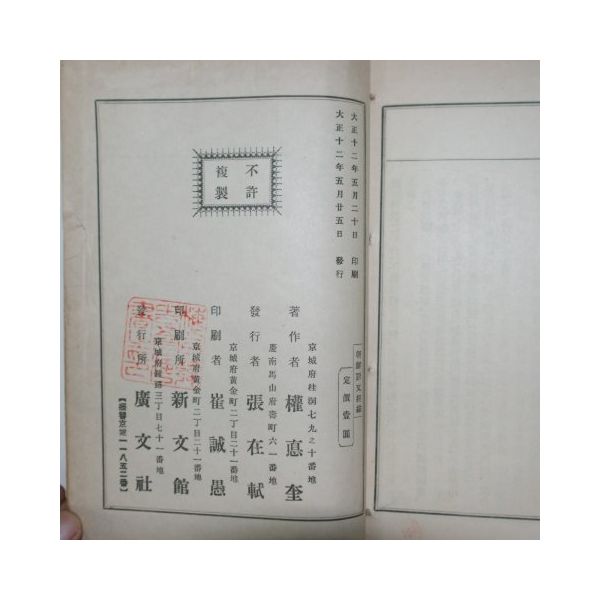 大正十二年五月二十日 印刷
大正十二年五月廿五日 發行
不許
複製
定價壹圓
京城府桂洞七九之十番地
著作者 權悳奎
慶南馬山府壽町六一番地
發行者 張在軾
京城府黃金町二丁目二十一番地
印刷者 崔誠愚
京城府黃金町二丁目二十一番地
印刷所 新文館
京城府鍾路三丁目七十一番地
發行所 廣文社